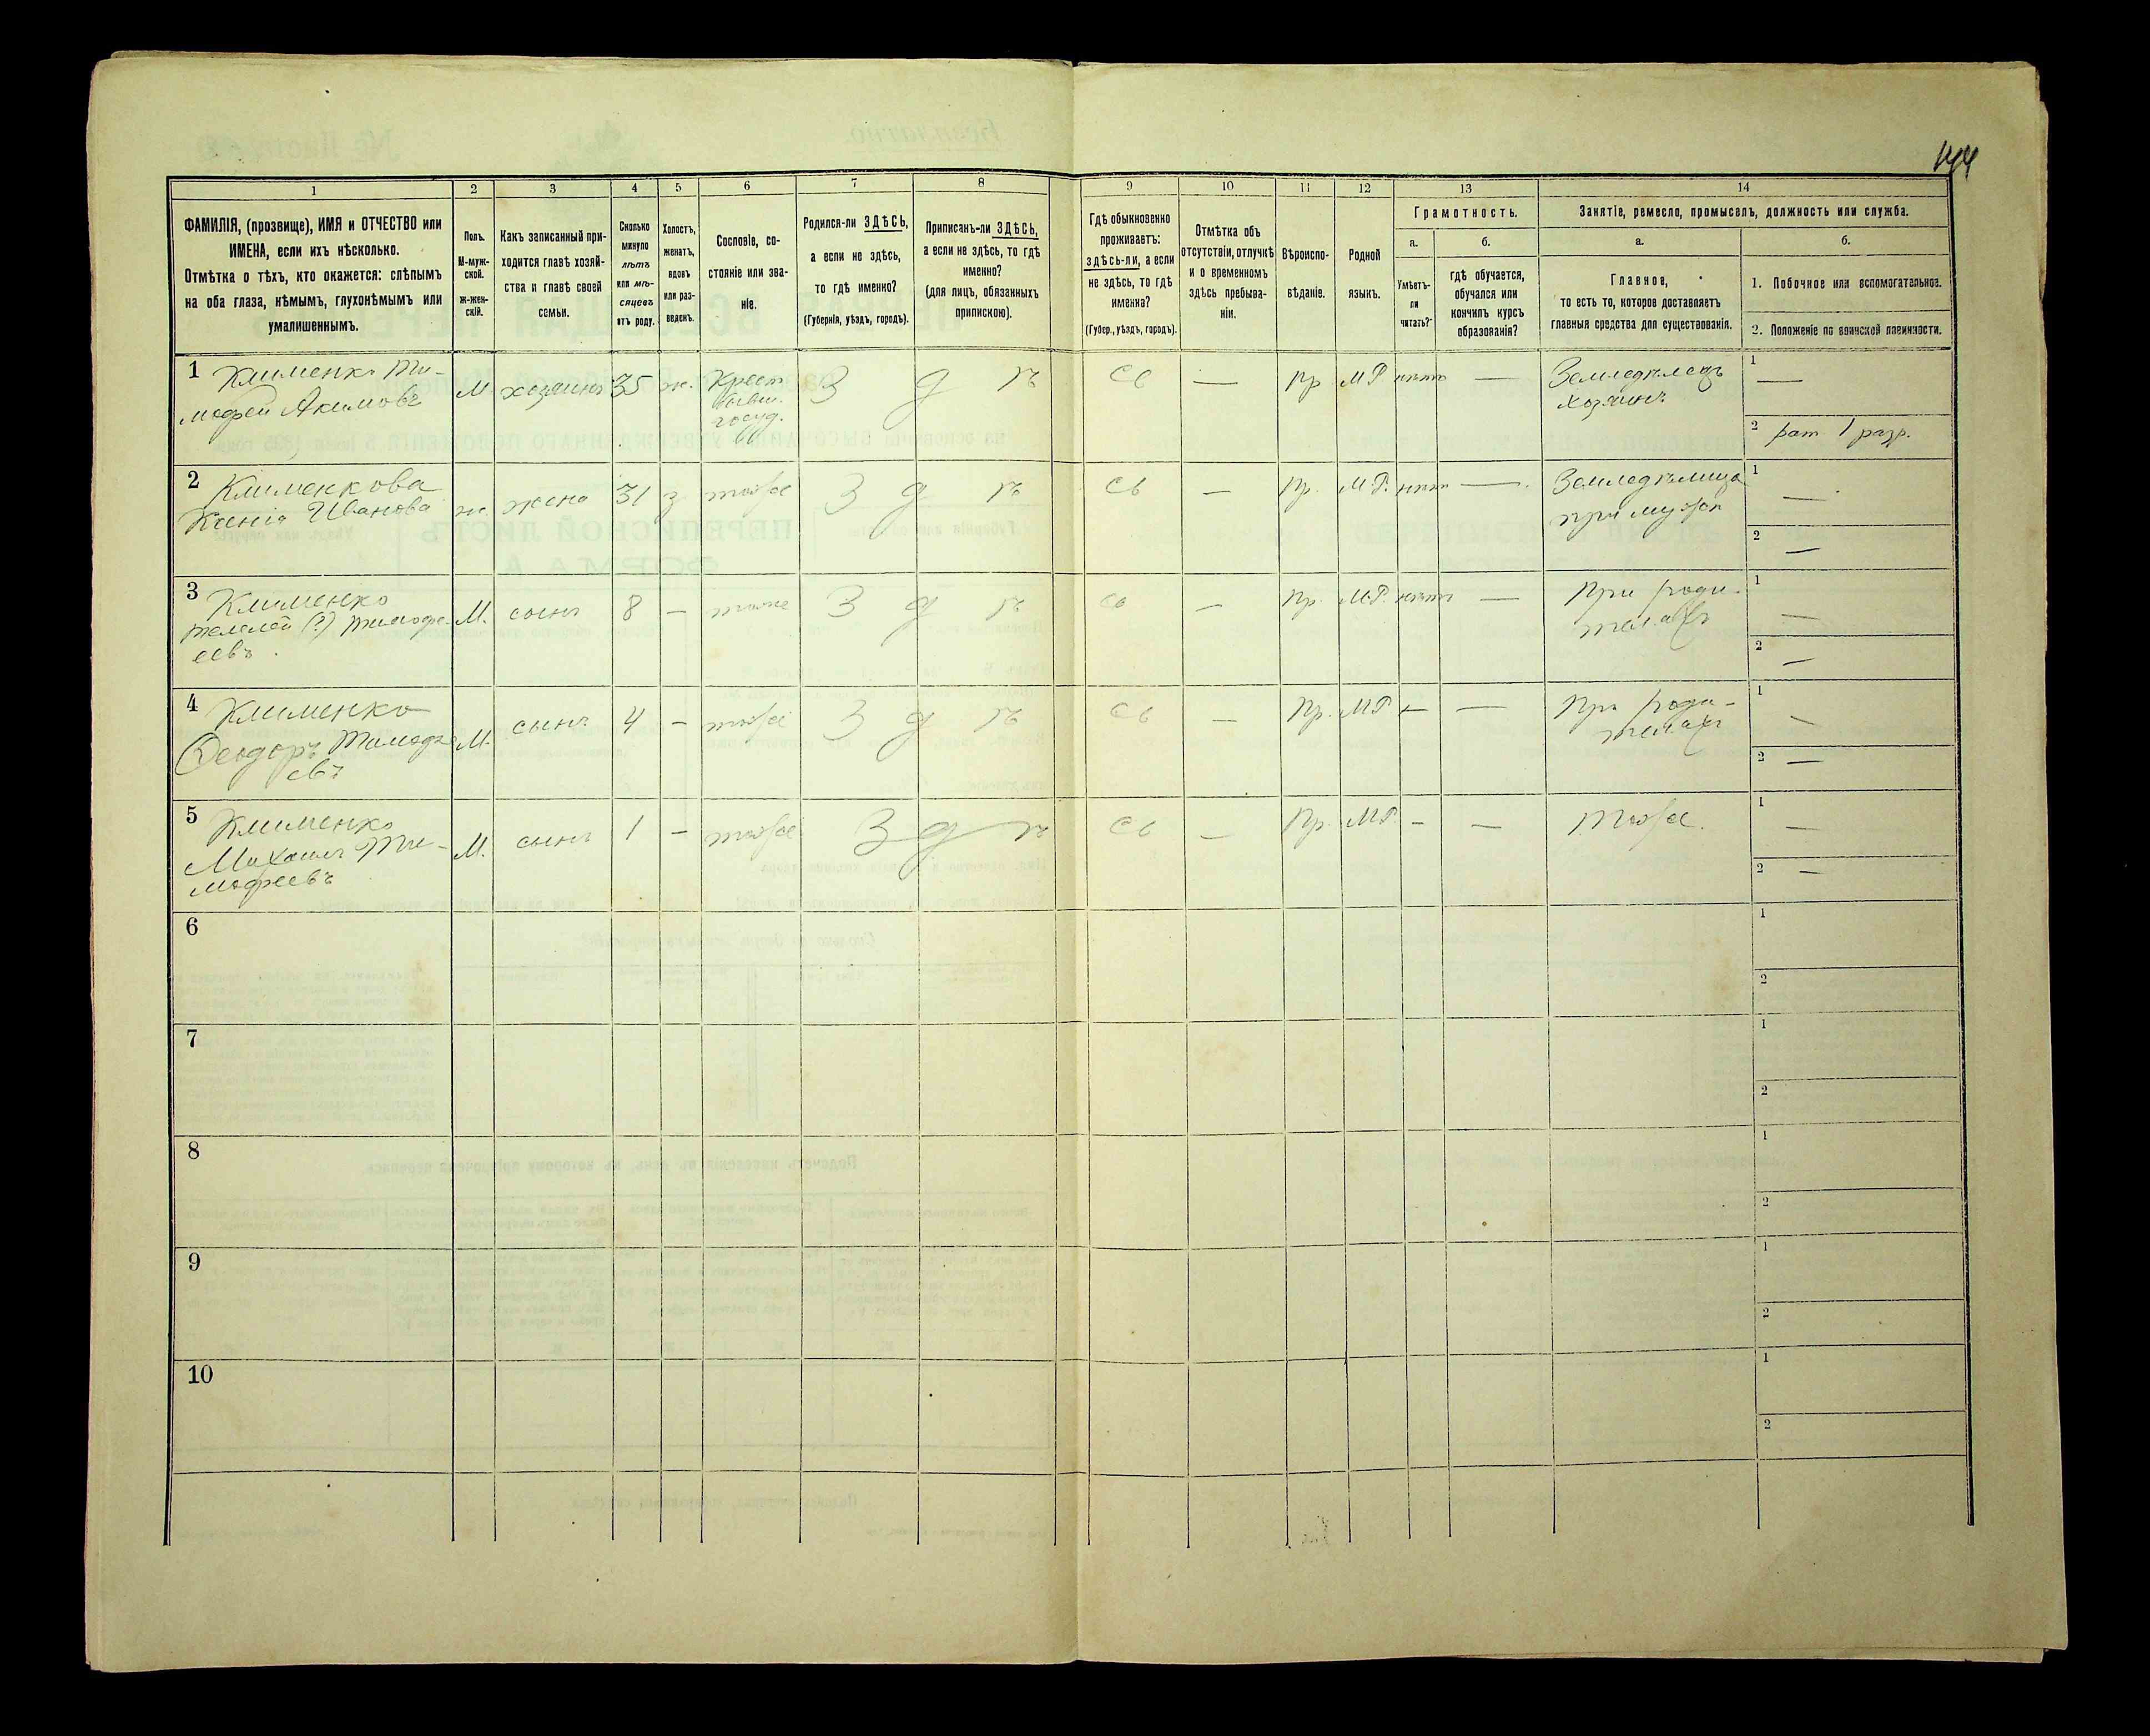 144
1
2
3
4
5
6
7
8
9
10
11
12
13
14
ФАМИЛІЯ, (прозвище), ИМЯ и ОТЧЕСТВО или
ИМЕНА, если ихъ нѣсколько.
Отмѣтка о тѣхъ, кто окажется: слѣпымъ
на оба глаза, нѣмымъ, глухонѣмымъ или
умалишеннымъ.
Полъ.
М-муж-
ской.
ж-жен-
скій.
Какъ записанный при-
ходится главѣ хозяй-
ства и главѣ своей
семьи.
Сколько
минуло
лѣтъ
или мѣ-
сяцевъ
отъ роду.
Холостъ,
женатъ,
вдовъ
или раз-
веденъ.
Сословіе, со-
стояніе или зва-
ніе.
Родился-ли ЗДѢСЬ,
а если не здѣсь,
то гдѣ именно?
(Губернія, уѣздъ, городъ).
Приписанъ-ли ЗДѢСЬ,
а если не здѣсь, то гдѣ
именно?
(для лицъ, обязанныхъ
припискою).
Гдѣ обыкновенно
проживаетъ:
здѣсь-ли, а если
не здѣсь, то гдѣ
именно?
(Губер., уѣздъ, городъ).
Отмѣтка объ
отсутствіи, отлучкѣ
и о временномъ
здѣсь пребыва-
ніи.
Вѣроиспо-
вѣданіе.
Родной
языкъ.
Грамотность.
а.
Умѣетъ-
ли
читать?
б.
гдѣ обучается,
обучался или
кончилъ курсъ
образованія?
Занятіе, ремесло, промыселъ, должность или служба.
а.
Главное,
то есть то, которое доставляетъ
главныя средства для существованія.
б.
1. Побочное или вспомогательное.
2. Положеніе по воинской повинности.
1 Клименко Ти-
мофей Акимовъ
М хозяинъ 35 ж. Крест.
бывш.
госуд.
З д ѣ сь — Пр М Р нѣтъ — Земледѣлецъ
хозяинъ
1 —
2 рат 1 разр.
2 Клименкова
Ксенія Иванова
ж. жена 31 з тоже З д ѣ сь — Пр. М.Р. нѣтъ — Земледѣлица
при мужѣ
1 —
2 —
3 Клименко
(?) Тимофе-
евъ.
М. сынъ 8 — тоже З д ѣ сь — Пр. М.Р. нѣтъ — При роди-
теляхъ
1 —
2 —
4 Клименко
Ѳеодоръ Тимофе
евъ
М. сынъ 4 — тоже З д ѣ сь — Пр. М.Р. — — При роди-
теляхъ
1 —
2 —
5 Клименко
Михаилъ Ти-
мофеевъ
М. сынъ 1 — тоже З д ѣ сь — Пр. М.Р. — — Тоже.
1 —
2 —
6
1
2
7
1
2
8
1
2
9
1
2
10
1
2